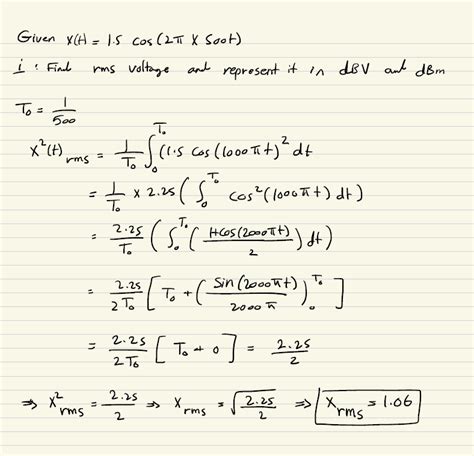 Given x(t) = 1.5 cos(2π × 500t)
i : Find rms voltage and represent it in dBV and dBm
T₀ = 1/500
x²(t) rms = 1/T₀ ∫₀^T₀ (1.5 cos(1000πt)² dt
= 1/T₀ × 2.25 ( ∫₀^T₀ cos²(1000πt) dt)
= 2.25/T₀ ( ∫₀^T₀ ( 1+cos(2000πt)/2 ) dt)
= 2.25/2T₀ [ T₀ + ( sin(2000πt)/2000π )₀^T₀ ]
= 2.25/2T₀ [ T₀ + 0 ] = 2.25/2
⇒ x²rms = 2.25/2 ⇒ xrms = √(2.25/2) ⇒ xrms = 1.06